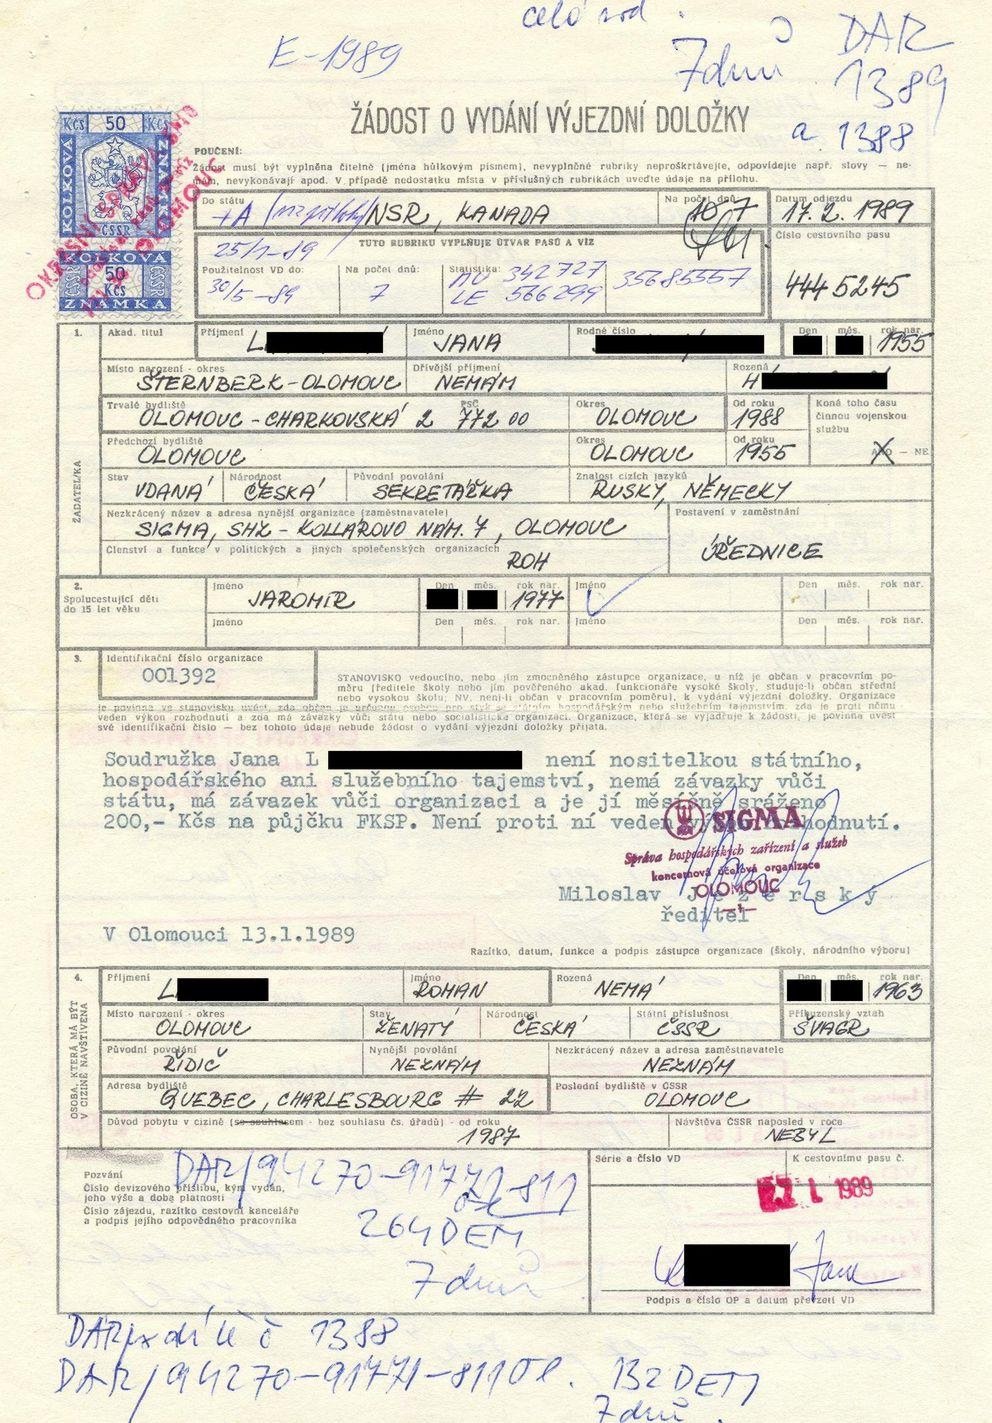 celý rod.
E-1989
7 dnů
DAR
1389
a. 1388
ŽÁDOST O VYDÁNÍ VÝJEZDNÍ DOLOŽKY
Kčs 50 Kčs
KOLKOVÁ
ZNÁMKA
ČSSR
KOLKOVÁ
50
Kčs
ZNÁMKA
POUČENÍ:
Žádost musí být vyplněna čitelně (jména hůlkovým písmem), nevyplněné rubriky neproškrtávejte, odpovídejte např. slovy — nemám, nevykonávají apod. V případě nedostatku místa v příslušných rubrikách uveďte údaje na přílohu.
Do státu
NSR, KANADA
Na počet dnů
7
Datum odjezdu
17. 2. 1989
TUTO RUBRIKU VYPLŇUJE ÚTVAR PASŮ A VÍZ
25/1-89
Číslo cestovního pasu
444 5245
Použitelnost VD do:
30/5-89
Na počet dnů:
7
Statistika:
MU 342727
LE 566299
35685557
1.
Akad. titul
Příjmení
L
Jméno
JANA
Rodné číslo
Den měs. rok nar.
1955
Místo narození - okres
ŠTERNBERK-OLOMOUC
Dřívější příjmení
NEMÁM
Rozená
H
Trvalé bydliště
PSČ
OLOMOUC-CHARKOVSKÁ 2 772 00
Okres
OLOMOUC
Od roku
1988
Koná toho času činnou vojenskou službu
ANO — NE
Předchozí bydliště
OLOMOUC
Okres
OLOMOUC
Od roku
1955
ŽADATEL/KA
Stav
VDANÁ
Národnost
ČESKÁ
Původní povolání
SEKRETÁŘKA
Znalost cizích jazyků
RUSKY, NĚMECKY
Nezkrácený název a adresa nynější organizace (zaměstnavatele)
SIGMA, SHZ - KOLLÁROVO NÁM. 7, OLOMOUC
Postavení v zaměstnání
ÚŘEDNICE
Členství a funkce v politických a jiných společenských organizacích
ROH
2.
Spolucestující děti
do 15 let věku
Jméno
JAROMÍR
Den měs. rok nar.
1977
Jméno
Den měs. rok nar.
Jméno
Den měs. rok nar.
Jméno
Den měs. rok nar.
3.
Identifikační číslo organizace
001392
STANOVISKO vedoucího, nebo jím zmocněného zástupce organizace, u níž je občan v pracovním poměru (ředitele školy nebo jím pověřeného akad. funkcionáře vysoké školy, studuje-li občan střední nebo vysokou školu; NV, není-li občan v pracovním poměru), k vydání výjezdní doložky. Organizace
je povinna ve stanovisku uvést, zda občan je určenou osobou pro styk se státním, hospodářským nebo služebním tajemstvím, zda je proti němu
veden výkon rozhodnutí a zda má závazky vůči státu nebo socialistické organizaci. Organizace, která se vyjadřuje k žádosti, je povinna uvést
své identifikační číslo — bez tohoto údaje nebude žádost o vydání výjezdní doložky přijata.
Soudružka Jana L není nositelkou státního,
hospodářského ani služebního tajemství, nemá závazky vůči
státu, má závazek vůči organizaci a je jí měsíčně sráženo
200,- Kčs na půjčku FKSP. Není proti ní veden výkon rozhodnutí.
SIGMA
Správa hospodářských zařízení a služeb
koncernová účelová organizace
OLOMOUC
Miloslav Jezerský
ředitel
V Olomouci 13.1.1989
Razítko, datum, funkce a podpis zástupce organizace (školy, národního výboru)
4.
Příjmení
L
Jméno
ROMAN
Rozená
NEMÁ
Den měs. rok nar.
1963
OSOBA, KTERÁ MÁ BÝT
V CIZINĚ NAVŠTÍVENA
Místo narození - okres
OLOMOUC
Stav
ŽENATÝ
Národnost
ČESKÁ
Státní příslušnost
ČSSR
Příbuzenský vztah
ŠVAGR
Původní povolání
ŘIDIČ
Nynější povolání
NEZNÁM
Nezkrácený název a adresa zaměstnavatele
NEZNÁM
Adresa bydliště
QUEBEC, CHARLESBOURG # 22
Poslední bydliště v ČSSR
OLOMOUC
Důvod pobytu v cizině (se souhlasem - bez souhlasu čs. úřadů) - od roku
1987
Návštěva ČSSR naposled v roce
NEBYL
Pozvání
Číslo devizového příslibu, kým vydán,
jeho výše a doba platnosti
Číslo zájezdu, razítko cestovní kanceláře
a podpis jejího odpovědného pracovníka
DAR/94270-91771-811
264 DEM
7 dnů
Série a číslo VD
K cestovnímu pasu č.
1989
Jana
Podpis a číslo OP a datum převzetí VD
č 1388
DAR/94270-91771-811 01. 132 DEM
7 dnů.